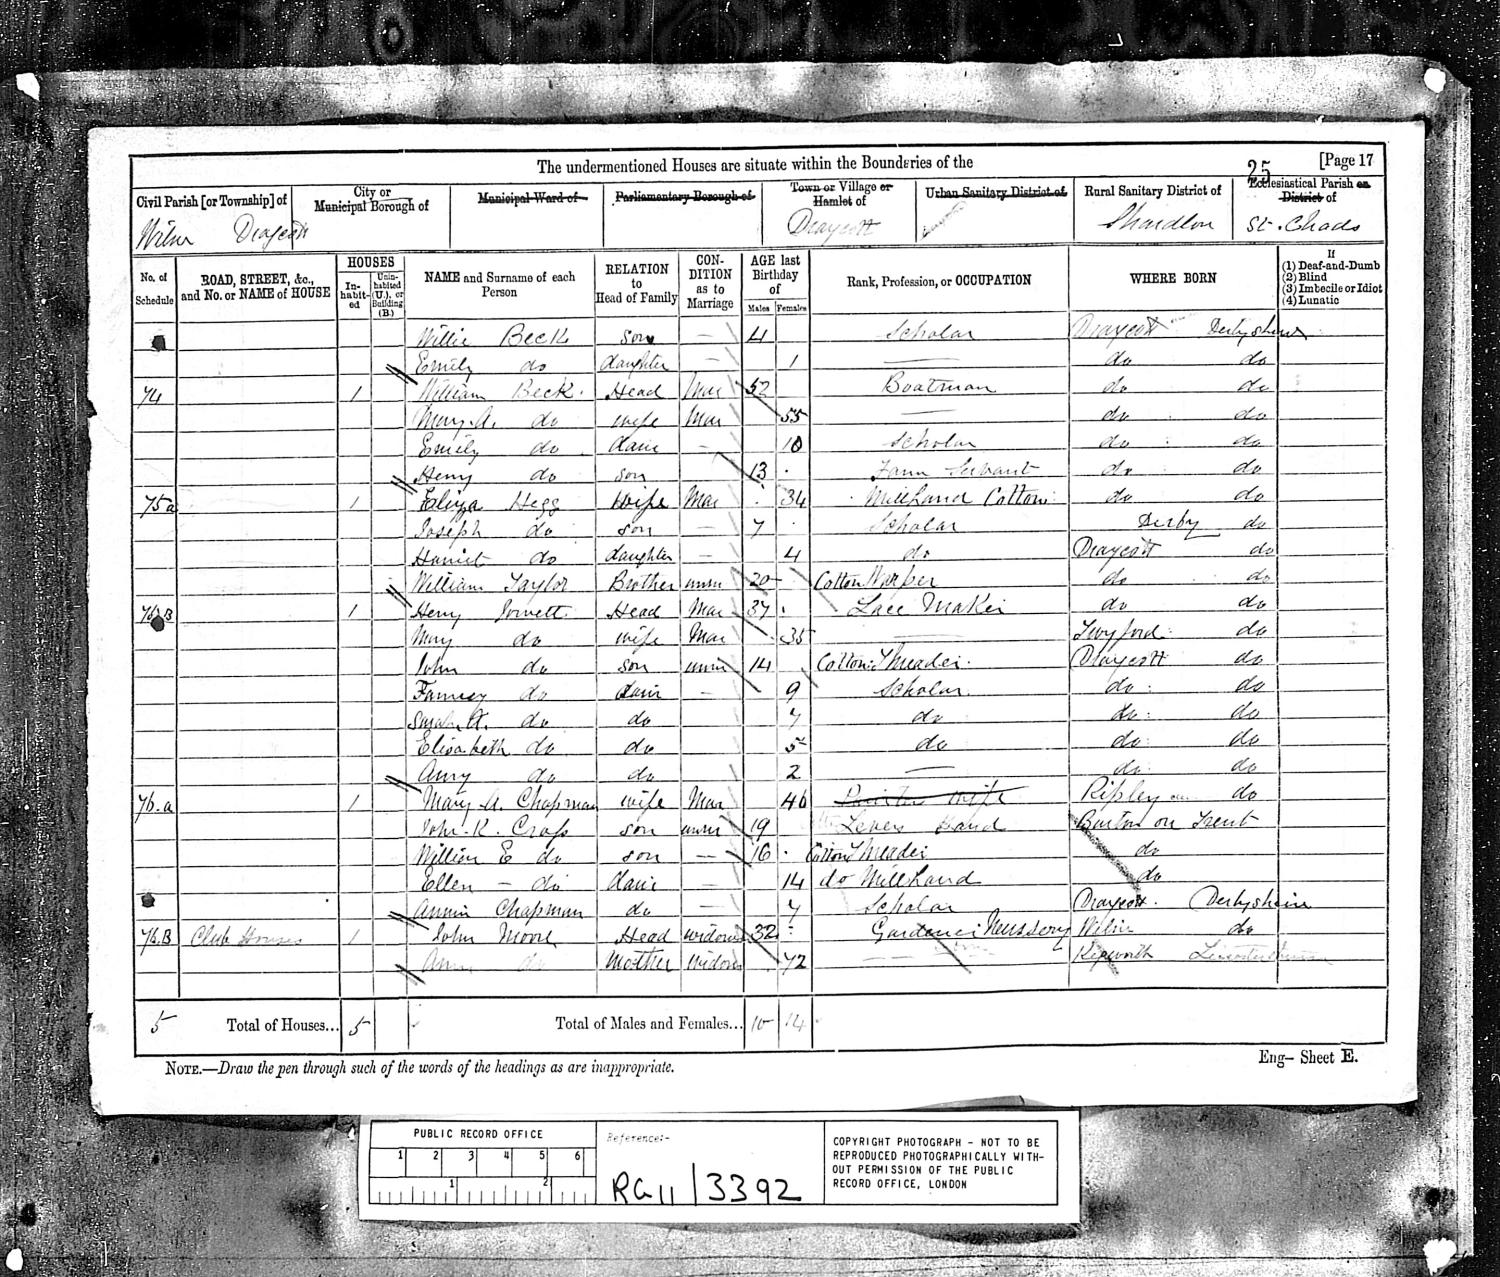 The undermentioned Houses are situate within the Boundaries of the
25
[Page 17
Civil Parish [or Township] of
City or Municipal Borough of
Municipal Ward of
Parliamentary Borough of
Town or Village or Hamlet of
Urban Sanitary District of
Rural Sanitary District of
Ecclesiastical Parish or District of
Wilne Draycott
Draycott
Shardlow
St. Chads
No. of Schedule
ROAD, STREET, &c., and No. or NAME of HOUSE
HOUSES
In-habit-ed
Unin-habited (U.), or Building (B.)
NAME and Surname of each Person
RELATION to Head of Family
CON-DITION as to Marriage
AGE last Birthday of
Males
Females
Rank, Profession, or OCCUPATION
WHERE BORN
If
(1) Deaf-and-Dumb
(2) Blind
(3) Imbecile or Idiot
(4) Lunatic
Willie Beck son — 4 Scholar Draycott Derbyshire
Emily do daughter — 1 — do do
74 1 William Beck Head Mar 52 Boatman do do
Mary A. do wife Mar 55 — do do
Emily do daur — 10 Scholar do do
Henry do son 13 Farm Servant do do
75a 1 Eliza Hegg Wife Mar 34 Millhand Cotton do do
Joseph do son — 7 Scholar Derby do
Harriet do daughter — 4 do Draycott do
William Taylor Brother unm 20 Cotton Warper do do
1 Henry Jowett Head Mar 37 Lace Maker do do
Mary do wife Mar 35 — Twyford do
John do son unm 14 Cotton Threader Draycott do
Fanney do daur — 9 Scholar do do
Sarah A. do do 7 do do do
Elisabeth do do 5 do do do
Amy do do 2 — do do
76.a 1 Mary A. Chapman wife Mar 46 wife Ripley do
John K. Cross son unm 19 Levers Hand Burton on Trent
William E do son — 16 Cotton Threader do
Ellen — do daur — 14 do Millhand do
Annie Chapman do — 7 Scholar Draycott. Derbyshire
76.B Club Houses 1 John Moore Head widowr 32 Gardener Nursery Wilne do
Ann do Mother widow 72 — Kegworth Leicestershire
5 Total of Houses... 5 Total of Males and Females... 10 14
NOTE.—Draw the pen through such of the words of the headings as are inappropriate.
Eng– Sheet E.
PUBLIC RECORD OFFICE
1 2 3 4 5 6
1 2
Reference:-
RG 11 / 3392
COPYRIGHT PHOTOGRAPH - NOT TO BE
REPRODUCED PHOTOGRAPHICALLY WITH-
OUT PERMISSION OF THE PUBLIC
RECORD OFFICE, LONDON